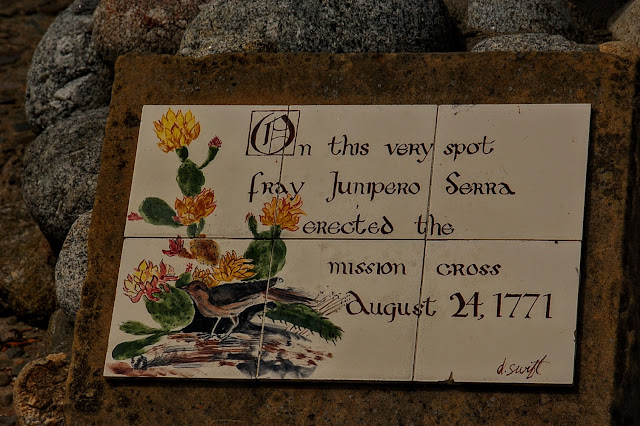 On this very spot
fray Junipero Serra
erected the
mission cross
August 24, 1771
d. swift